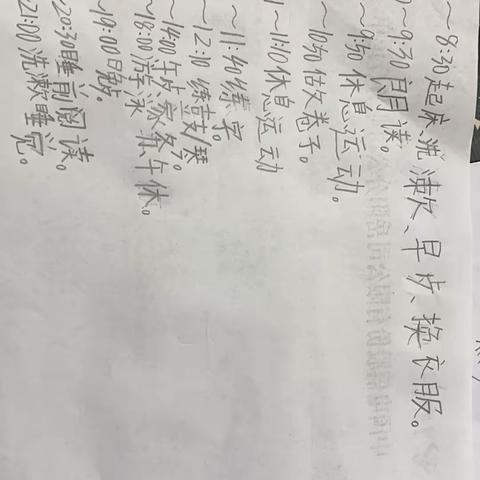 ~8:30起床、洗漱、早歺、换衣服。
~9:30 朗读。
~9:50 休息运动。
~10:50 做卷子。
1~11:10休息运动
~11:40练字。
~12:10 练琴
~14:00 午歺、家务、午休。
~18:00游泳
~19:00
~20:30睡前阅读。
21:00洗漱睡觉。